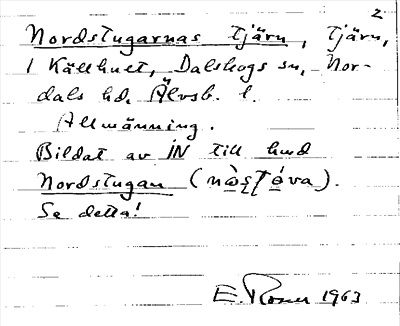 2
Nordstugarnas tjärn, tjärn,
i Källhult, Dalskogs sn, Nor-
dals hd, Älvsb. l.
Allmänning.
Bildat av IN till hmd
Nordstugan (
Se detta!
E. Rosen 1963